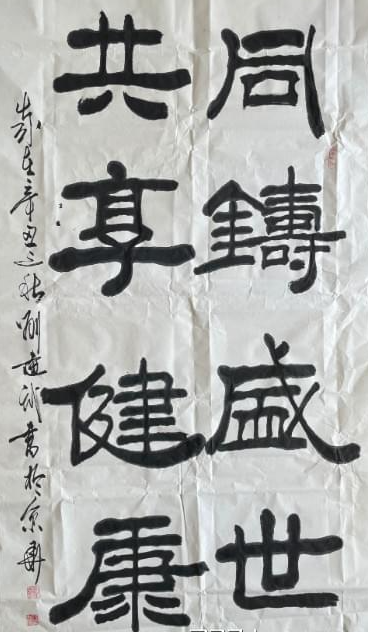 同鑄盛世
共享健康
歲在辛丑之秋
書於京華